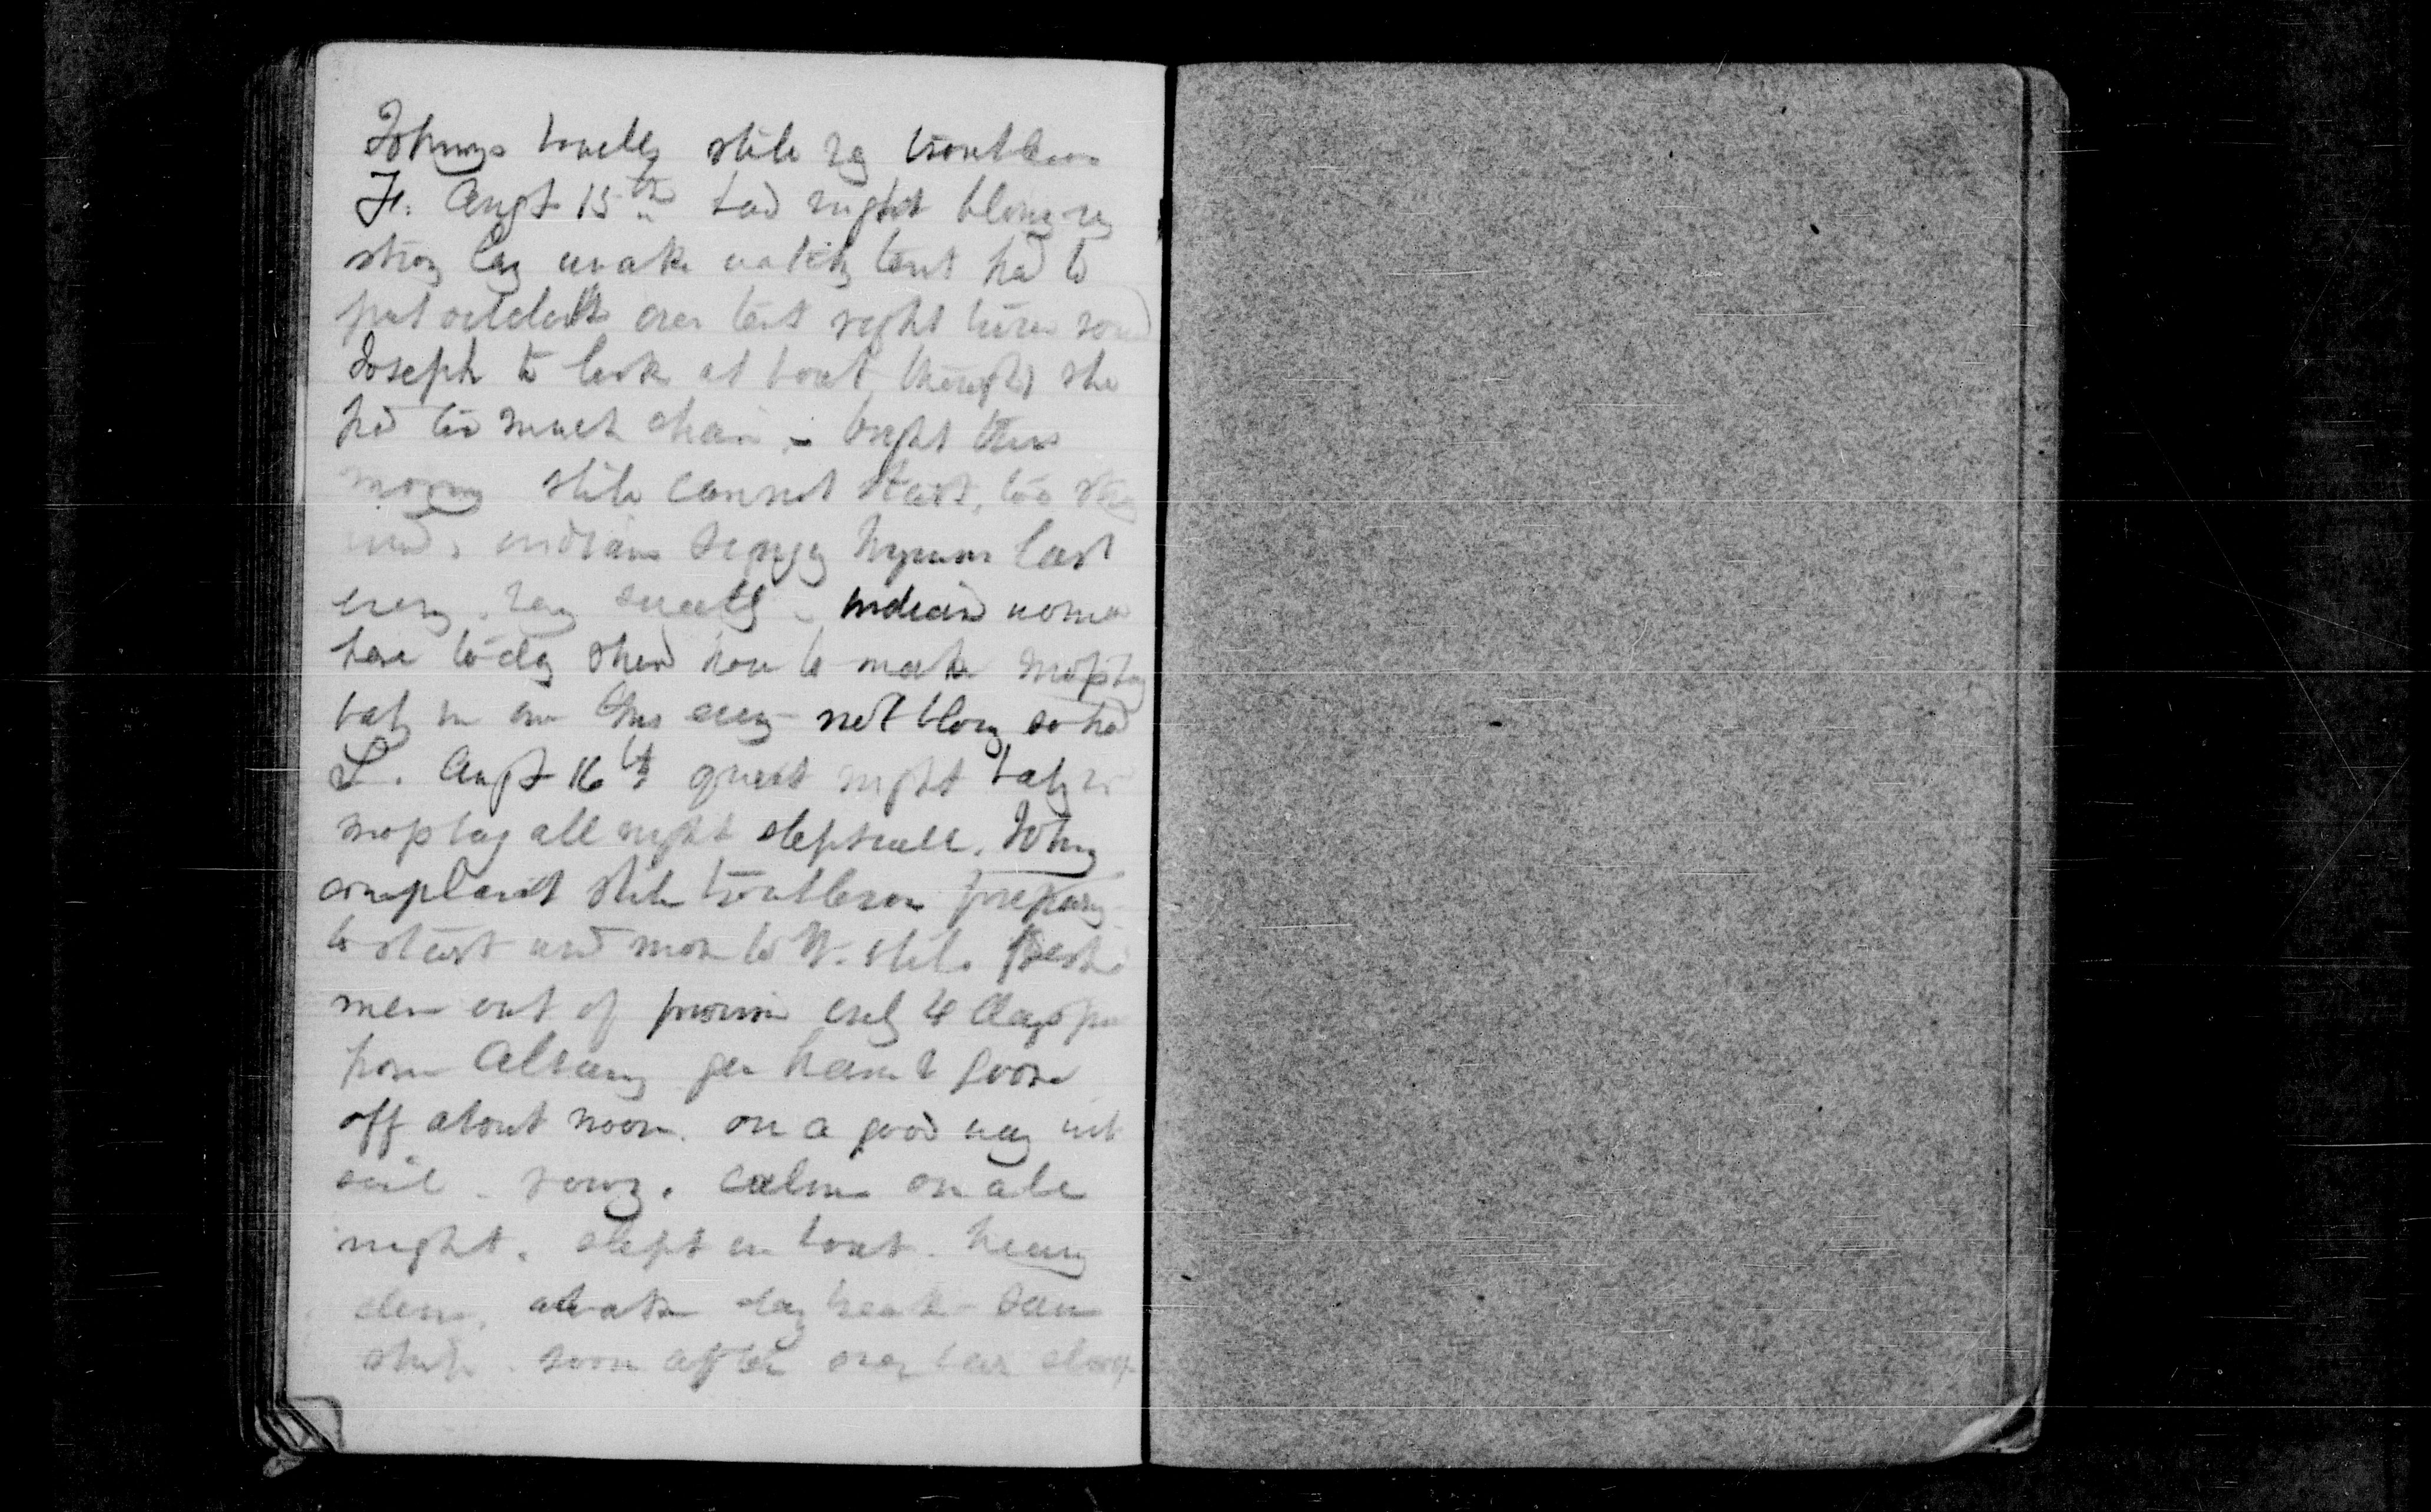 Johnys bowells still vy troublesom
Fr. Augt 15th bad night blowing
strong lay awake watchg tent had to
put oilcloth over tent night
Joseph to look at boat, thought she
had too much chain - bright this
morng still cannot start, too strg
wind, indians singg hymns last
eveng. vey sweetly - indian woman
here to-day shewd how to make mosbag
baby in one this eveng - not blowg so hd
S. Augt 16th quiet night baby in
mosbag all night slept well. Johny
complaint still troublesom prepaing
to start wnd more to W. still fresh
men out of provision only 4 days
from Albany gev them 2 goose
off about noon. on a good way wit
sail - rowg. calm on all
night. slept in boat. heavy
dew. awake day break - saw
ship. soon after over bar along